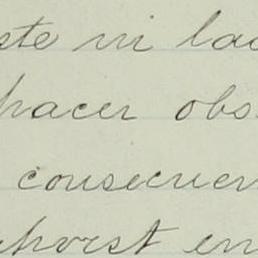 ste ni lad
hacer obs
consecuen
horst en